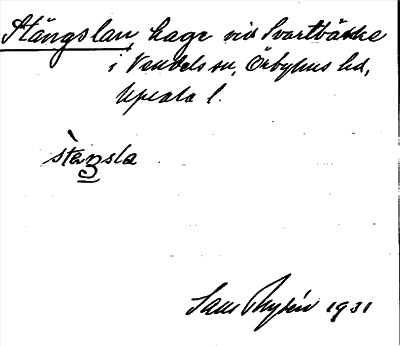 Stängslan, hage vid Svartbäcke
i Vendels sn, Örbyhus hd,
Upsala l.
stäŋsla
1931